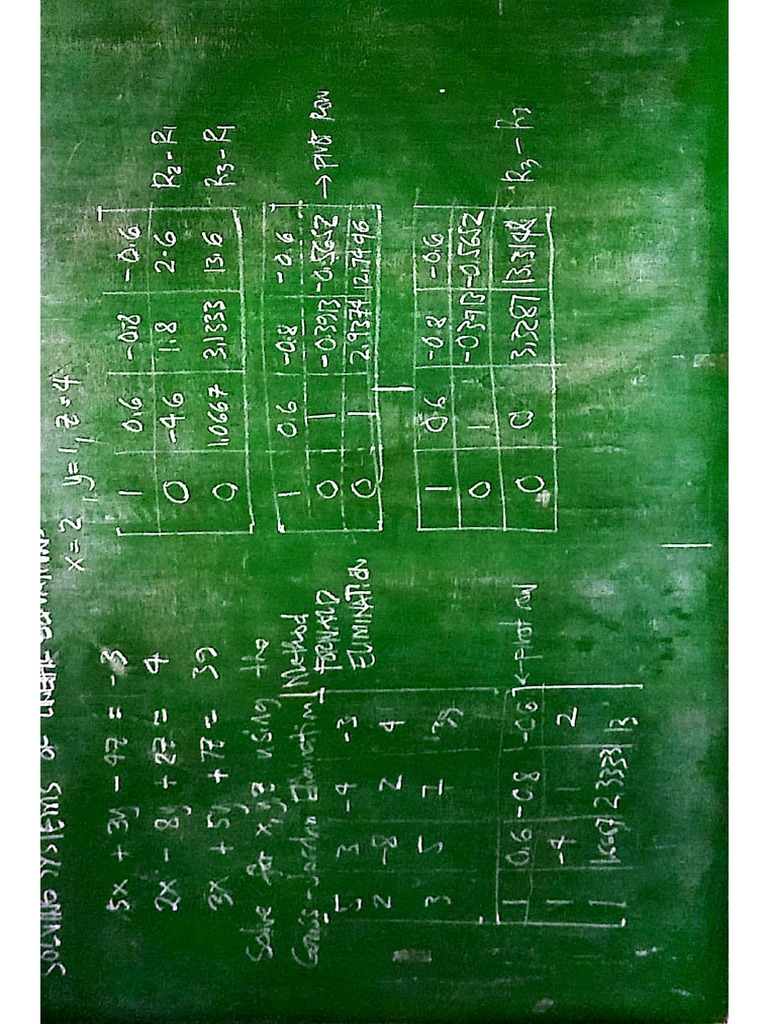 SOLVING SYSTEMS OF LINEAR
x = 2, y = 1, z = 4
5x + 3y - 4z = -3
2x - 8y + 2z = 4
3x + 5y + 7z = 39
Solve for x, y, z using the
Gauss-Jordan Elimination Method
FORWARD
ELIMINATION
5 3 -4 -3
2 -8 2 4
3 5 7 39
1 0.6 -0.8 -0.6 ← pivot row
1 -4 1 2
1 1.6667 2.3333 13
1 0.6 -0.8 -0.6
0 -4.6 1.8 2.6 R2 - R1
0 1.0667 3.1333 13.6 R3 - R1
1 0.6 -0.8 -0.6
0 1 -0.3913 -0.5652 → PIVOT ROW
0 1 2.9374 12.7496
1 0.6 -0.8 -0.6
0 1 -0.3913 -0.5652
0 0 3.3287 13.3148 R3 - R2